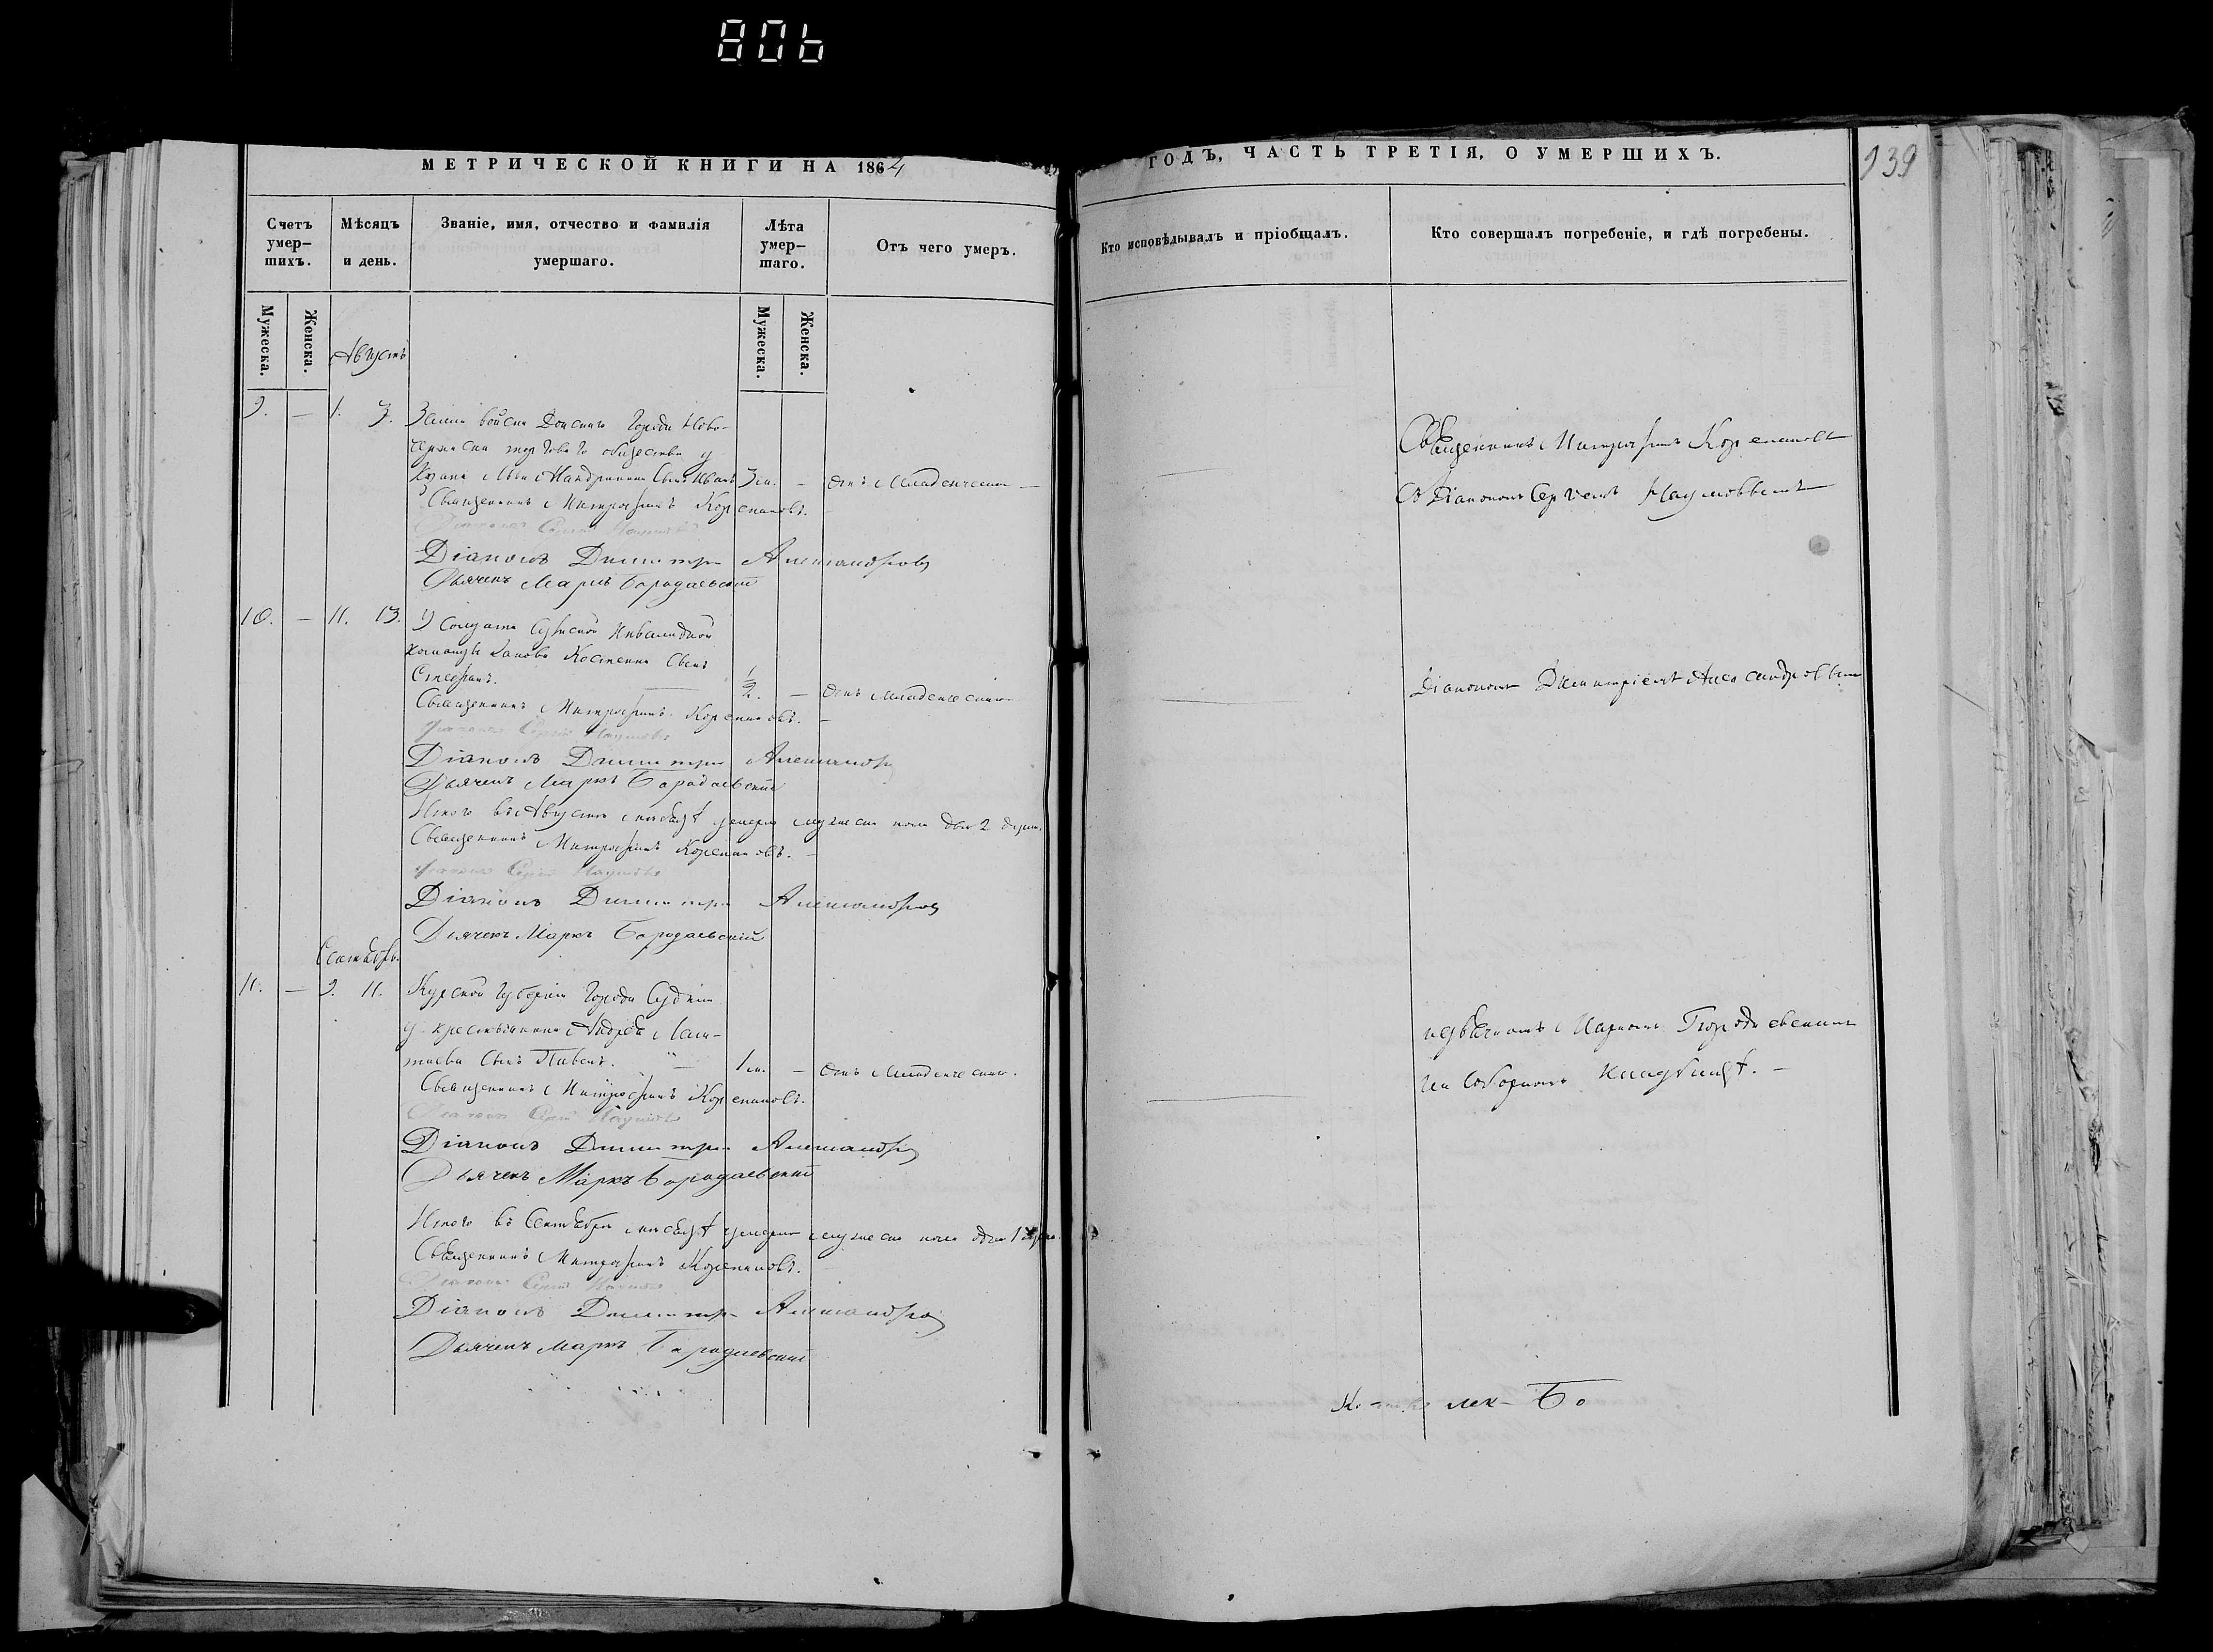 80b
МЕТРИЧЕСКОЙ КНИГИ НА 1864
Счетъ умер-
шихъ.
Мѣсяцъ
и день.
Званіе, имя, отчество и фамилія
умершаго.
Лѣта
умер-
шаго.
Отъ чего умеръ.
Мужеска.
Женска.
Мужеска.
Женска.
Августъ
9. — 1. 3. Земли войска Донскаго Города Ново-
черкаска торговаго общества у
сынъ Иванъ 3 м. — Отъ младенческой —
Священникъ Митрофанъ Корепановъ.
Діаконъ Сергій Наумовъ
Діаконъ Димитрій Александровъ
Дьячекъ Маркъ Бородаевскій
10. — 11. 13. У Солдата Суджской Инвалидной
команды сынъ
Стефанъ. 1/2. — Отъ младенческой
Священникъ Митрофанъ Корепановъ. —
Діаконъ Сергій Наумовъ
Діаконъ Димитрій Александровъ
Дьячекъ Маркъ Бородаевскій
Итого въ Августѣ мѣсяцѣ умерло мужеска пола двѣ 2 души.
Священникъ Митрофанъ Корепановъ. —
Діаконъ Сергій Наумовъ
Діаконъ Димитрій Александровъ
Дьячекъ Маркъ Бородаевскій
Сентябрь.
11. — 9. 11. Курской Губерніи Города Суджи
у крестьянина Андрея
сынъ Павелъ. 1 м. — Отъ младенческой.
Священникъ Митрофанъ Корепановъ.
Діаконъ Сергій Наумовъ
Діаконъ Димитрій Александровъ
Дьячекъ Маркъ Бородаевскій
Итого въ Сентябрѣ мѣсяцѣ умерла мужеска пола одна 1 душа.
Священникъ Митрофанъ Корепановъ.
Діаконъ Сергій Наумовъ
Діаконъ Димитрій Александровъ
Дьячекъ Маркъ Бородаевскій
ГОДЪ, ЧАСТЬ ТРЕТІЯ, О УМЕРШИХЪ.
939
Кто исповѣдывалъ и пріобщалъ.
Кто совершалъ погребеніе, и гдѣ погребены.
Священникъ Митрофанъ Корепановъ
Съ Діакономъ Сергіемъ Наумовымъ
Діакономъ Димитріемъ Александровымъ
и дьячкомъ Маркомъ Бородаевскимъ
на соборномъ кладбищѣ. —
Бо